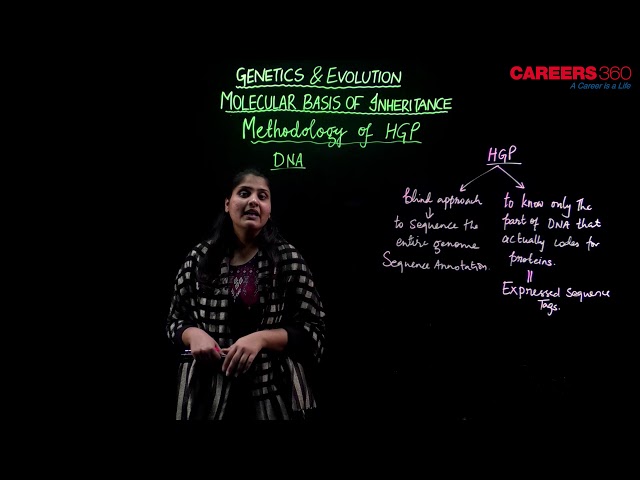 CAREERS360
A Career is a Life
GENETICS & EVOLUTION
MOLECULAR BASIS OF INHERITANCE
Methodology of HGP
DNA
HGP
blind approach
to sequence the
entire genome
Sequence Annotation.
to know only the
part of DNA that
actually codes for
proteins.
Expressed Sequence
Tags.